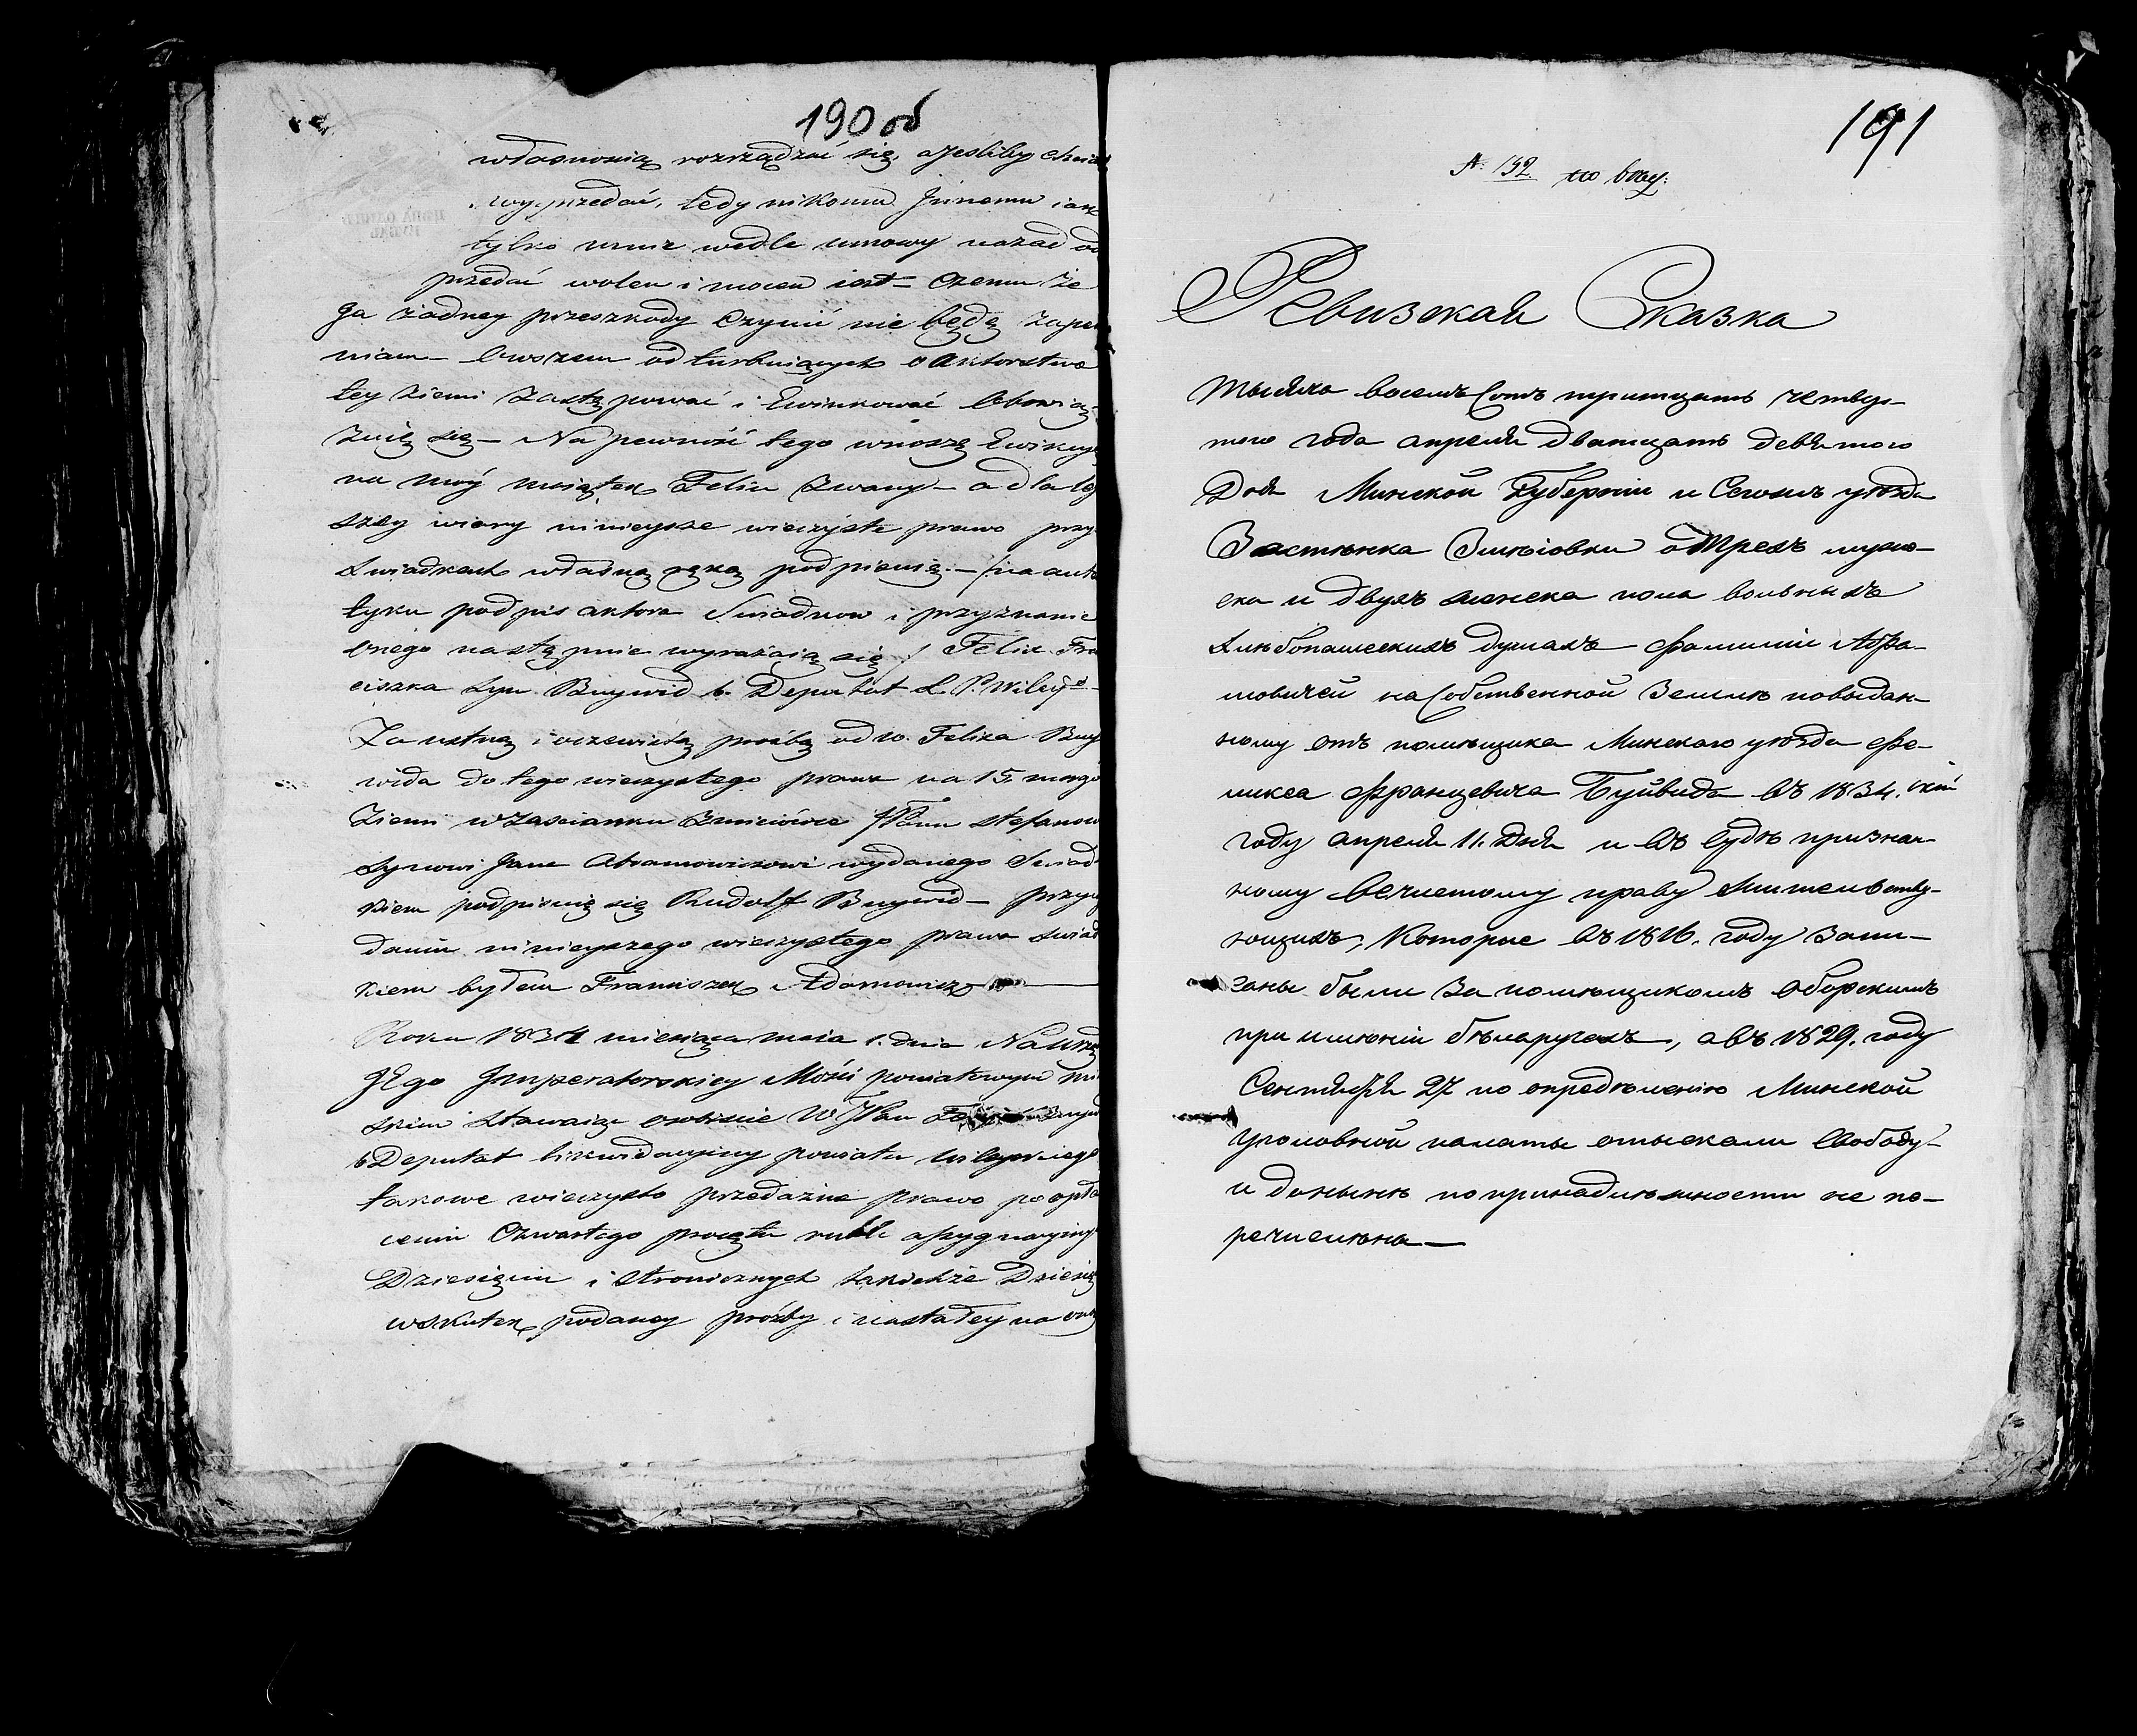 190 об
własnością rozrządzać się, a jeśliby chciał
wyprzedać, tedy nikomu Jnnemu iak
tylko mnie wedle umowy nazad od
przedać wolen i mocen iest — Czemu że
ia żadney przeszkody Czynić nie będę zapew
niam — Owszem od turbuiących o aktorstwo
tey ziemi zastępować i Ewinkować Obowią-
zuię się — Na pewność tego wnoszę Ewikcyę
na móy maiątek Felin zwany — a dla lep
szey wiary ninieysze wieczyste prawo przy
Świadkach własną ręką podpisuię. — /na auten
tyku podpis aktora Swiadkow i przyznanie
onego następnie wyrażaią się / Felix Fran
ciszka Syn Buywid b. Deputat L. P. Wileyo
Za ustną i oczewistą prośbą od W. Felixa Buy
wida do tego wieczystego prawa na 15 morgów
Ziemi w Zascianku Zmiciówce JPanu Stefanow
Synowi Jana Abramowiczowi wydanego Świad
kiem podpisuię się Rudolf Buywid — Przy wy
daniu ninieyszego wieczystego prawa świad
kiem byłem Franciszek Adamowicz
Roku 1834 miesiąca maia 1. dnia Na Urzę
JEgo Jmperatorskiey Mości powiatowym Miń
skim stawaiąc osobiscie WJPan Buywid
b Deputat likwidacyiny powiatu Wileyskiego
takowe wieczysto przedażne prawo po opła
ceniu Czwartego procętu rubli assygnacyiny
Dziesięciu i Stronicznych takichże Dziesię
wskutek podaney prośby i nastałey na oney
191
№ 192 по вѣд:
Ревизская Сказка
Тысяча восемь Сотъ тритцать четвер-
того года апреля дватцать девятого
Дня Минской Губерніи и Сегожъ уѣзда
Застѣнка Змѣювки о Трехъ муже-
ска и двухъ женска пола вольныхъ
Хлѣбопашескихъ душахъ фамиліи Абра-
мовичей на Собственной Землѣ повыдан-
ному отъ помѣщика Минскаго уѣзда Фе-
ликса Францевича Буйвида въ 1834.
году апреля 11. Дня и въ Судѣ признан-
ному вечистому праву Жительству-
ющихъ, Которые въ 1816. году Запи-
саны были за помѣщикомъ Оборскимъ
при имѣніи бѣларучахъ, а въ 1829. году
Сентября 27 по опредѣленію Минской
Уголовной палаты отыскали Свободу
и донынѣ по принадлежности не пе-
речислены —